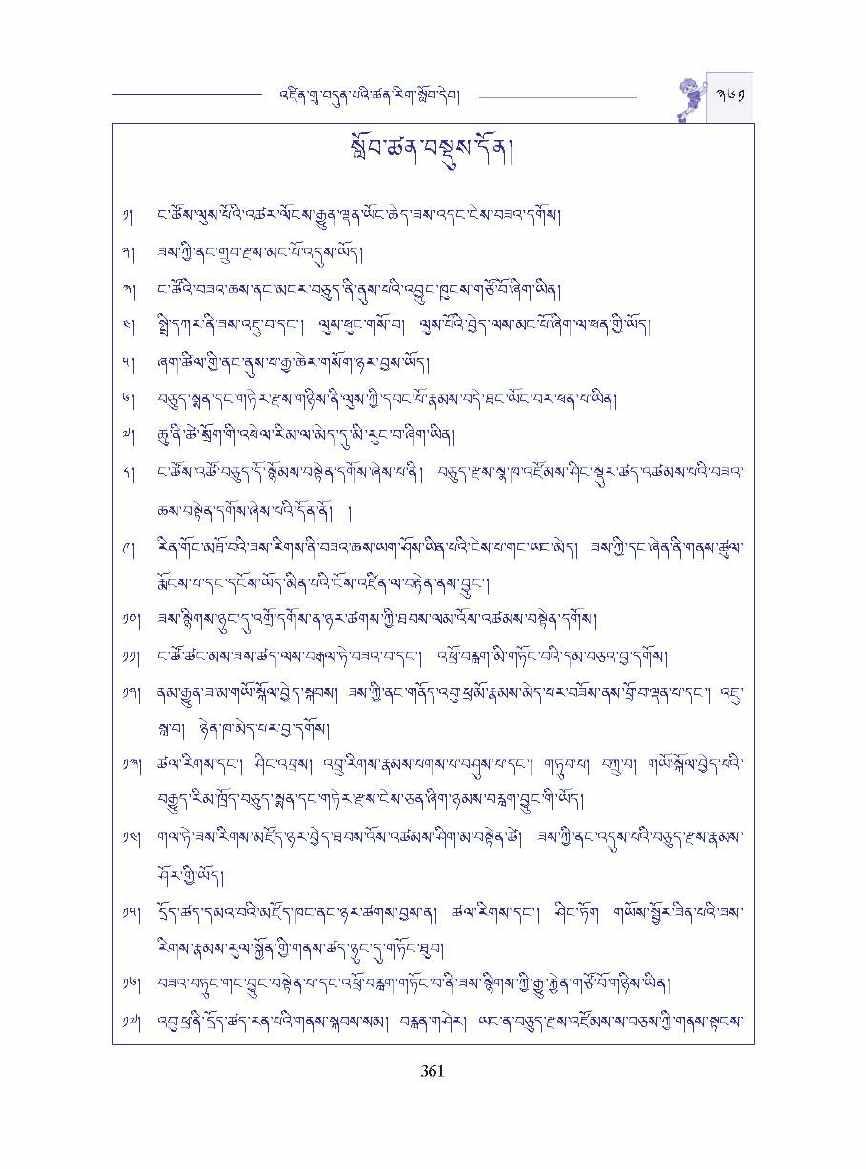 འཛིན་གྲྭ་བདུན་པའི་ཚན་རིག་སློབ་དེབ།
༣༦༡
སློབ་ཚན་བསྡུས་དོན།
༡། ང་ཚོས་ལུས་པོའི་འཚར་ལོངས་རྒྱུན་ལྡན་ཡོང་ཆེད་ཟས་འདང་ངེས་བཟའ་དགོས།
༢། ཟས་ཀྱི་ནང་གྲུབ་རྫས་མང་པོ་འདུས་ཡོད།
༣། ང་ཚོའི་བཟའ་ཆས་ནང་མངར་བཅུད་ནི་ནུས་པའི་འབྱུང་ཁུངས་གཙོ་བོ་ཞིག་ཡིན།
༤། སྤྲི་དཀར་ནི་ཟས་འཇུ་བ་དང་། ལུས་ཕུང་གསོ་བ། ལུས་པོའི་བྱེད་ལས་མང་པོ་ཞིག་ལ་ཕན་གྱི་ཡོད།
༥། ཞག་ཚིལ་གྱི་ནང་ནུས་པ་རྒྱ་ཆེར་གསོག་ཉར་བྱས་ཡོད།
༦། བཅུད་སྨན་དང་གཏེར་རྫས་གཉིས་ནི་ལུས་ཀྱི་དབང་པོ་རྣམས་བདེ་ཐང་ཡོང་བར་ཕན་པ་ཡིན།
༧། ཆུ་ནི་ཚེ་སྲོག་གི་འཕེལ་རིམ་ལ་མེད་དུ་མི་རུང་བ་ཞིག་ཡིན།
༨། ང་ཚོས་འཚོ་བཅུད་དོ་སྙོམས་བསྟེན་དགོས་ཞེས་པ་ནི། བཅུད་རྫས་སྣ་ཁ་འཛོམས་ཤིང་སྡུར་ཚད་འཚམས་པའི་བཟའ་
ཆས་བསྟེན་དགོས་ཞེས་པའི་དོན་ནོ། །
༩། རིན་གོང་མཐོ་བའི་ཟས་རིགས་ནི་བཟའ་ཆས་ཡག་ཤོས་ཡིན་པའི་ངེས་པ་གང་ཡང་མེད། ཟས་ཀྱི་དང་ཞེན་ནི་གནས་ཚུལ་
རྨོངས་པ་དང་དངོས་ཡོད་མིན་པའི་ངོས་འཛིན་ལ་བརྟེན་ནས་བྱུང་།
༡༠། ཟས་སྙིགས་ཉུང་དུ་འགྲོ་དགོས་ན་ཉར་ཚགས་ཀྱི་ཐབས་ལམ་འོས་འཚམས་བསྟེན་དགོས།
༡༡། ང་ཚོ་ཚང་མས་ཟས་ཚད་ལས་བརྒལ་ཏེ་བཟའ་བ་དང་། འཕྲོ་བརླག་མི་གཏོང་བའི་དམ་བཅའ་བྱ་དགོས།
༡༢། ནམ་རྒྱུན་ཟ་མ་གཡོ་སྐོལ་བྱེད་སྐབས། ཟས་ཀྱི་ནང་གནོད་འབུ་ཕྲ་མོ་རྣམས་མེད་པར་བཟོས་ནས་བྲོ་བ་ལྡན་པ་དང་། འཇུ་
སླ་བ། ཉེན་ཁ་མེད་པར་བྱ་དགོས།
༡༣། ཚལ་རིགས་དང་། ཤིང་འབྲས། འབྲུ་རིགས་རྣམས་པགས་པ་བཤུས་པ་དང་། གཏུབ་པ། བཀྲུ་བ། གཡོ་སྐོལ་བྱེད་པའི་
བརྒྱུད་རིམ་ཁྲོད་བཅུད་སྨན་དང་གཏེར་རྫས་ངེས་ཅན་ཞིག་ཉམས་བརླག་བྱུང་གི་ཡོད།
༡༤། གལ་ཏེ་ཟས་རིགས་མཛོད་ཉར་བྱེད་ཐབས་འོས་འཚམས་ཤིག་མ་བསྟེན་ཚེ། ཟས་ཀྱི་ནང་འདུས་པའི་བཅུད་རྫས་རྣམས་
ཤོར་གྱི་ཡོད།
༡༥། དྲོད་ཚད་དམའ་བའི་མཛོད་ཁང་ནང་ཉར་ཚགས་བྱས་ན། ཚལ་རིགས་དང་། ཤིང་ཏོག གཡོས་སྦྱོར་ཟིན་པའི་ཟས་
རིགས་རྣམས་རུལ་སྐྱོན་གྱི་གནས་ཚད་ཉུང་དུ་གཏོང་ཐུབ།
༡༦། བཟའ་བཏུང་གང་བྱུང་བསྟེན་པ་དང་འཕྲོ་བརླག་གཏོང་བ་ནི་ཟས་སྙིགས་ཀྱི་རྒྱུ་རྐྱེན་གཙོ་བོ་གཉིས་ཡིན།
༡༧། འབུ་ཕྲ་ནི་དྲོད་ཚད་རན་པའི་གནས་སྐབས་སམ། བརླན་གཤེར། ཡང་ན་བཅུད་རྫས་འཛོམས་ས་བཅས་ཀྱི་གནས་སྟངས་
361